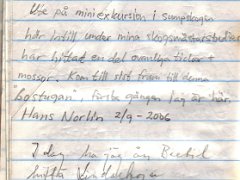 Ute på miniexkursion i sumpskogen
här intill under mina skogsmästarstudier
har hittat en del ovanliga tickor +
mossor. Kom till sist fram till denna
"Lostugan", första gången jag är här.
Hans Norlin 2/9-2006
Idag har jag